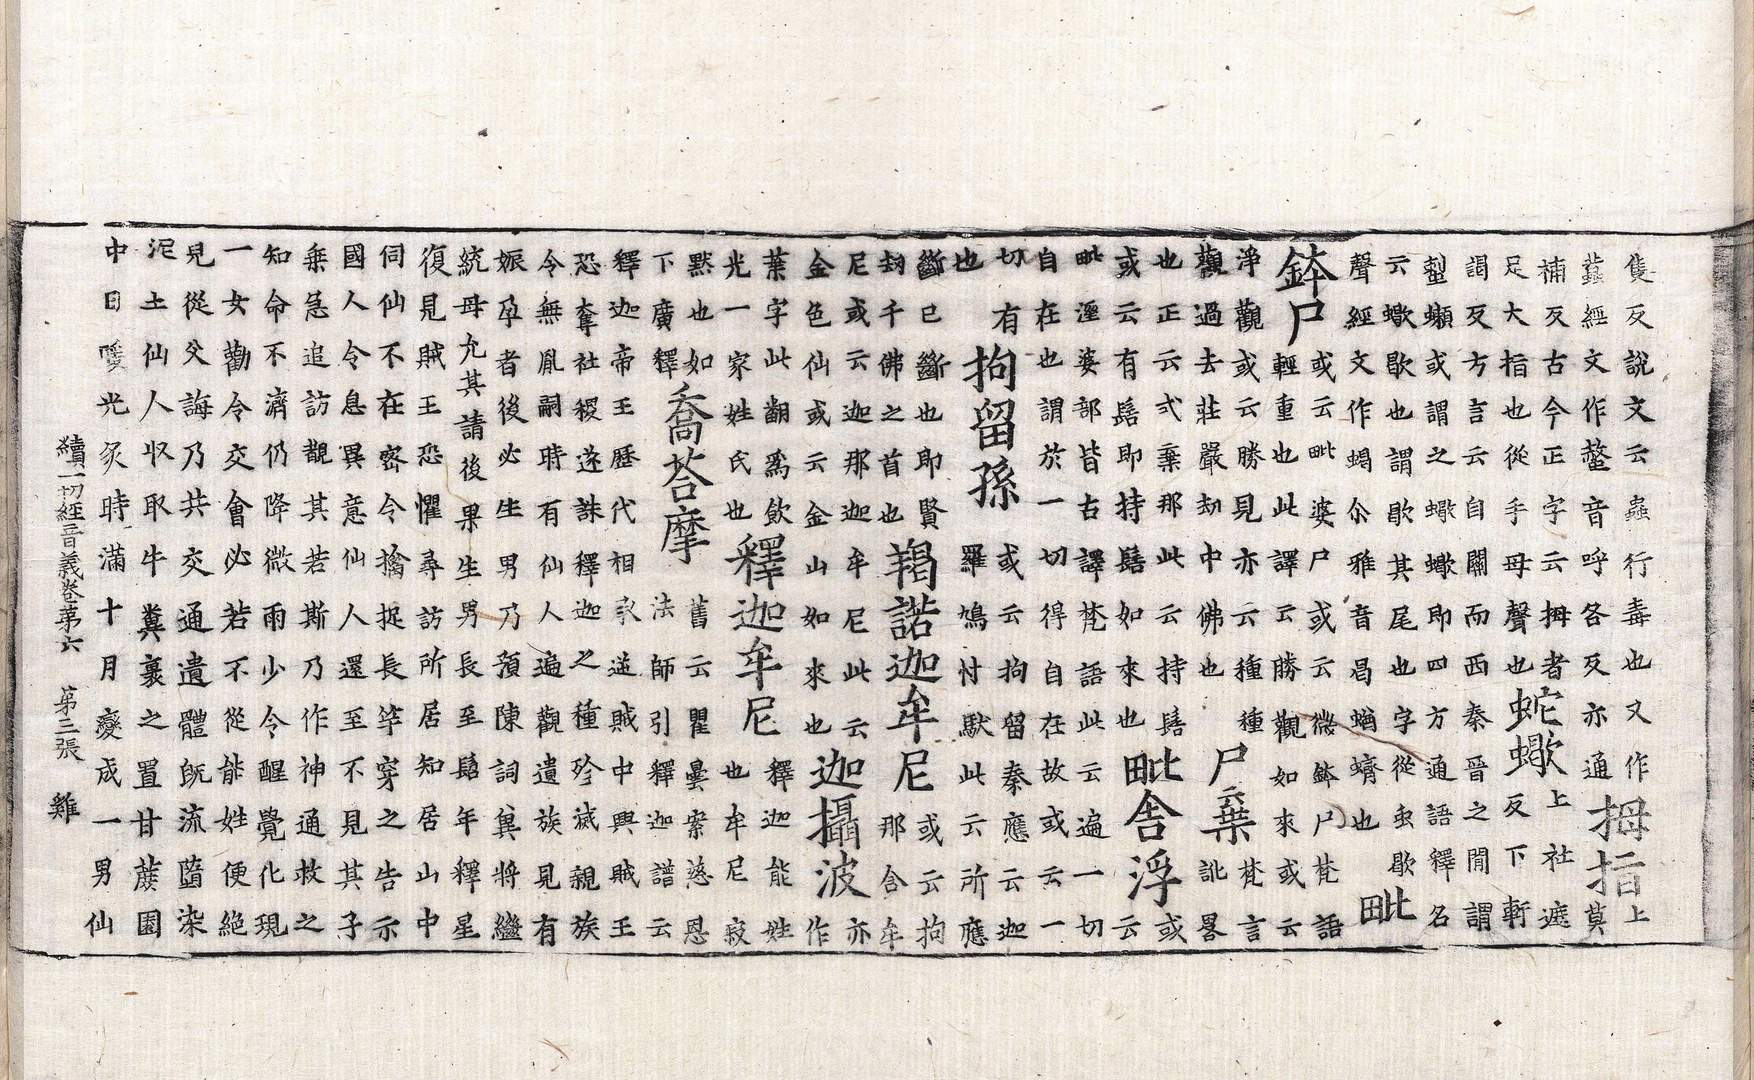 隻反說文云螽行毒也又作
蠚經文作螫音呼各反亦通
拇指
上
莫
補反古今正字云拇者
足大指也從手母聲也
蛇蠍
上社遮
反下軒
謁反方言云自關而西秦晉之間謂
蠍或謂之蠍蠍即四方通語釋名
云蠍歇也謂歇其尾也從字從虫歇
聲經文作蝎尒雅音曷蝤蠐也
毗
鉢尸
或云毗婆尸或云微鉢尸梵語
輕重也此譯云勝觀如來或云
淨觀或云勝見亦云種種
觀過去莊嚴劫中佛也
尸棄
梵言
訛畧
也正云式棄那此云持髻
或云有髻即持髻如來也
毗舍浮
或
云
毗溼婆部皆古譯梵語此云遍一切
自在也謂於一切得自在故或云一
切有
也
拘留孫
或云拘留秦應云迦
羅鳩忖馱此云所應
斷已斷也即賢
劫千佛之首也
羯諾迦牟尼
或云拘
那含牟
尼或云迦那迦牟尼此云
金色仙或云金山如來也
迦攝波
亦
作
葉字此翻爲飲
光一家姓氏也
釋迦牟尼
釋迦能姓
也牟尼寂
默也如
下廣釋
喬荅摩
舊云瞿曇案慈恩
法師引釋迦譜云
釋迦帝王歷代相承逆賊中興賊王
恐奪社稷遂誅釋迦之種殄滅親族
令無胤嗣時有仙人遍觀遺族見有
娠孕者後必生男乃預陳詞冀將繼
統母允其請後果生男長至髫年釋星
復見賊王恐懼尋訪所居知居山中
伺仙不在密令擒捉長竿穿之告示
國人令息異意仙人還至不見其子
乘急追訪觀其若斯乃作神通救之
知命不濟仍降微雨少令醒覺化現
一女勸令交會必若不從能姓便絕
見從父誨乃共交通遺體旣流䕃染
泥土仙人收取牛糞裹之置甘蔗園
中日暖光炙時滿十月變成一男仙
續一切經音義卷第六　第三張　雞